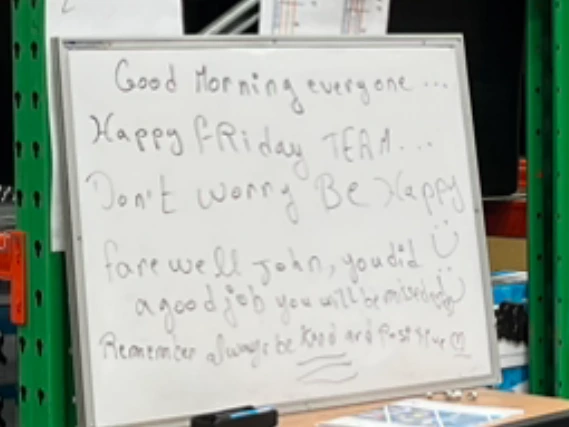 Good Morning everyone ...
Happy FRiday TEAM...
Don't worry Be Happy
farewell John, you did
a good job you will be missed
Remember always be Kind and Positive